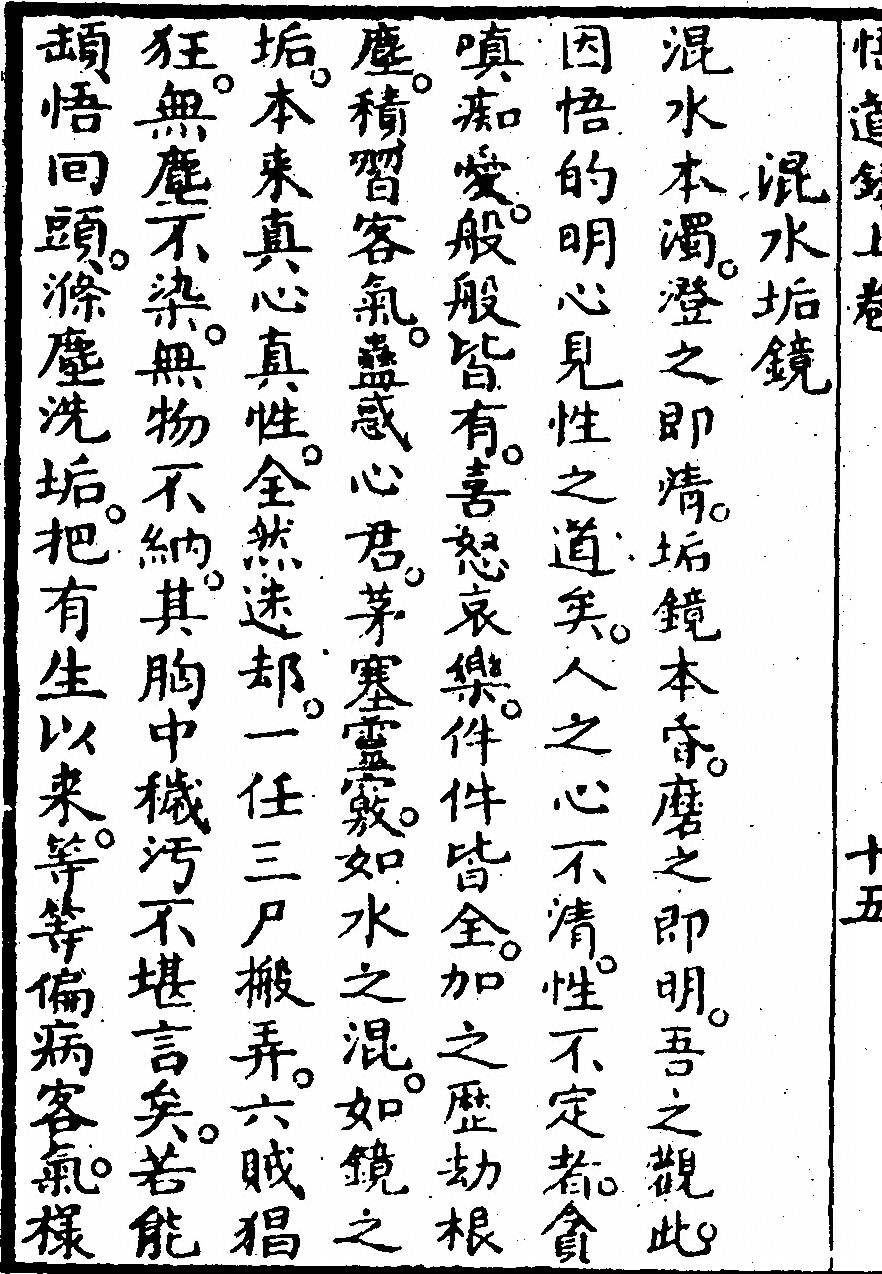 悟道錄上卷 十五
混水垢鏡
混水本濁。澄之即清。垢鏡本昏。磨之即明。吾之觀此。
因悟的明心見性之道矣。人之心不清。性不定者。貪
嗔痴愛。般般皆有。喜怒哀樂。件件皆全。加之歷劫根
塵。積習客氣。蠱惑心君。茅塞靈竅。如水之混。如鏡之
垢。本来真心真性。全然迷却。一任三尸搬弄。六賊猖
狂。無塵不染。無物不納。其胸中穢汚不堪言矣。若能
頓悟回頭。滌塵洗垢。把有生以来。等等偏病客氣。樣